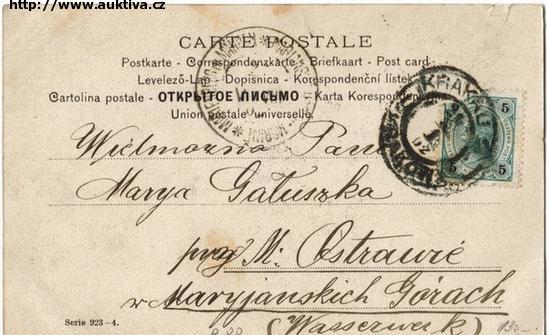 http://www.auktiva.cz
CARTE POSTALE
Postkarte - Correspondenzkarte - Briefkaart - Post card
Levelező-Lap - Dopisnica - Korespondenční lístek
Cartolina postale - ОТКРЫТОЕ ПИСЬМО - Karta Korespondencyjna
Union postale universelle.
KRAKÓW
5 5
Wielmożna Pani
Marya Gałuszka
przy M. Ostrawie
w Maryjańskich Górach
(Wasserwerk)
Serie 923-4.
130.-